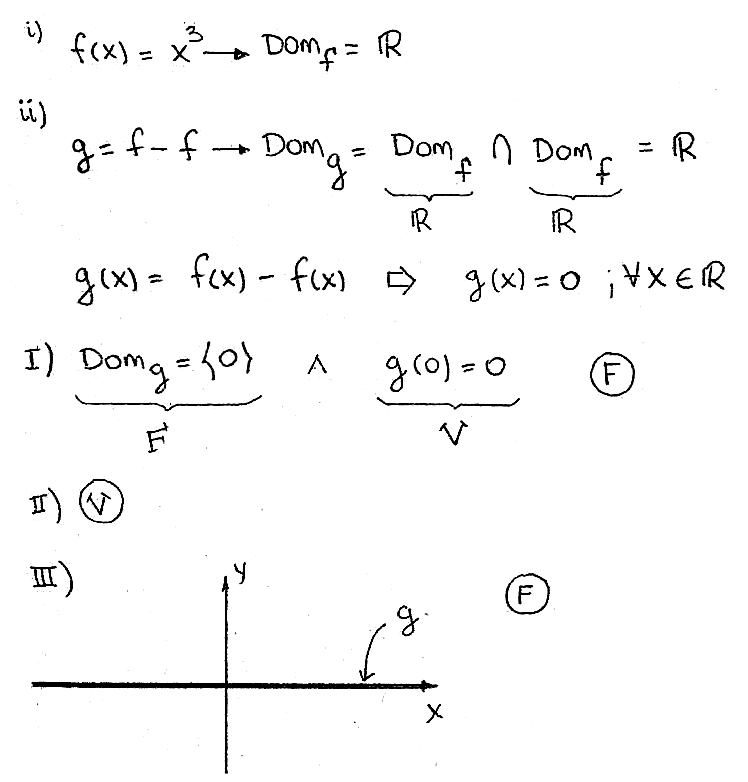 i) f(x) = x³ → Dom_f = ℝ
ii) g = f - f → Dom_g = Dom_f ∩ Dom_f = ℝ
ℝ ℝ
g(x) = f(x) - f(x) ⇨ g(x) = 0 ; ∀x ∈ ℝ
I) Dom_g = {0} ∧ g(0) = 0 (F)
F V
II) (V)
III) (F)
y
g.
x